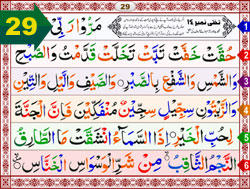 29
29
تختی نمبر ۱۶
حُقَّتْ خَفَّتْ تَبَّتْ تَخَلَّتْ قَدَّمَتْ وَالصُّبْحِ
وَالشَّمْسِ وَالشَّفْعِ بِالصَّبْرِ وَالصَّيْفِ وَالَّيْلِ وَالتِّيْنِ
وَالزَّيْتُوْنِ سِجِّيْلٍ سِجِّيْنٌ مُنْفَكِّيْنَ فَاِنَّ الْجَنَّةَ
لِحُبِّ الْخَيْرِ اِذَا السَّمَآءُ انْشَقَّتْ مَا الطَّارِقُ
النَّجْمُ الثَّاقِبُ مِنْ شَرِّ الْوَسْوَاسِ الْخَنَّاسِ